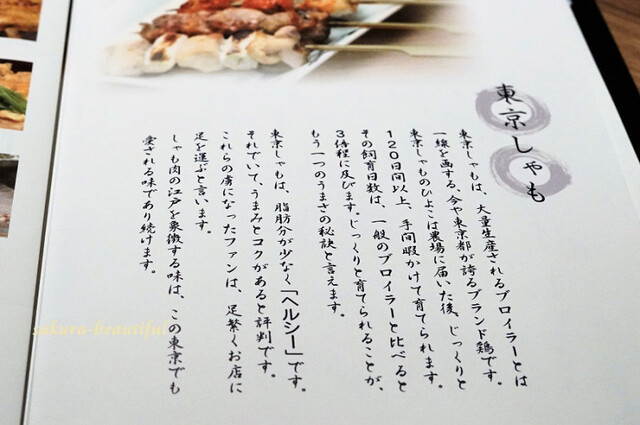 東京しゃも
東京しゃもは、大量生産されるブロイラーとは
一線を画する、今や東京都が誇るブランド鶏です。
東京しゃものひよこは農場に届いた後、じっくりと
120日間以上、手間暇かけて育てられます。
その飼育日数は、一般のブロイラーと比べると
3倍程に及びます。じっくりと育てられることが、
もう一つのうまさの秘訣と言えます。
東京しゃもは、脂肪分が少なく「ヘルシー」です。
それでいて、うまみとコクがあると評判です。
これらの虜になったファンは、足繁くお店に
足を運ぶと言います。
しゃも肉の江戸を象徴する味は、この東京でも
愛される味であり続けます。
sakura-beautiful